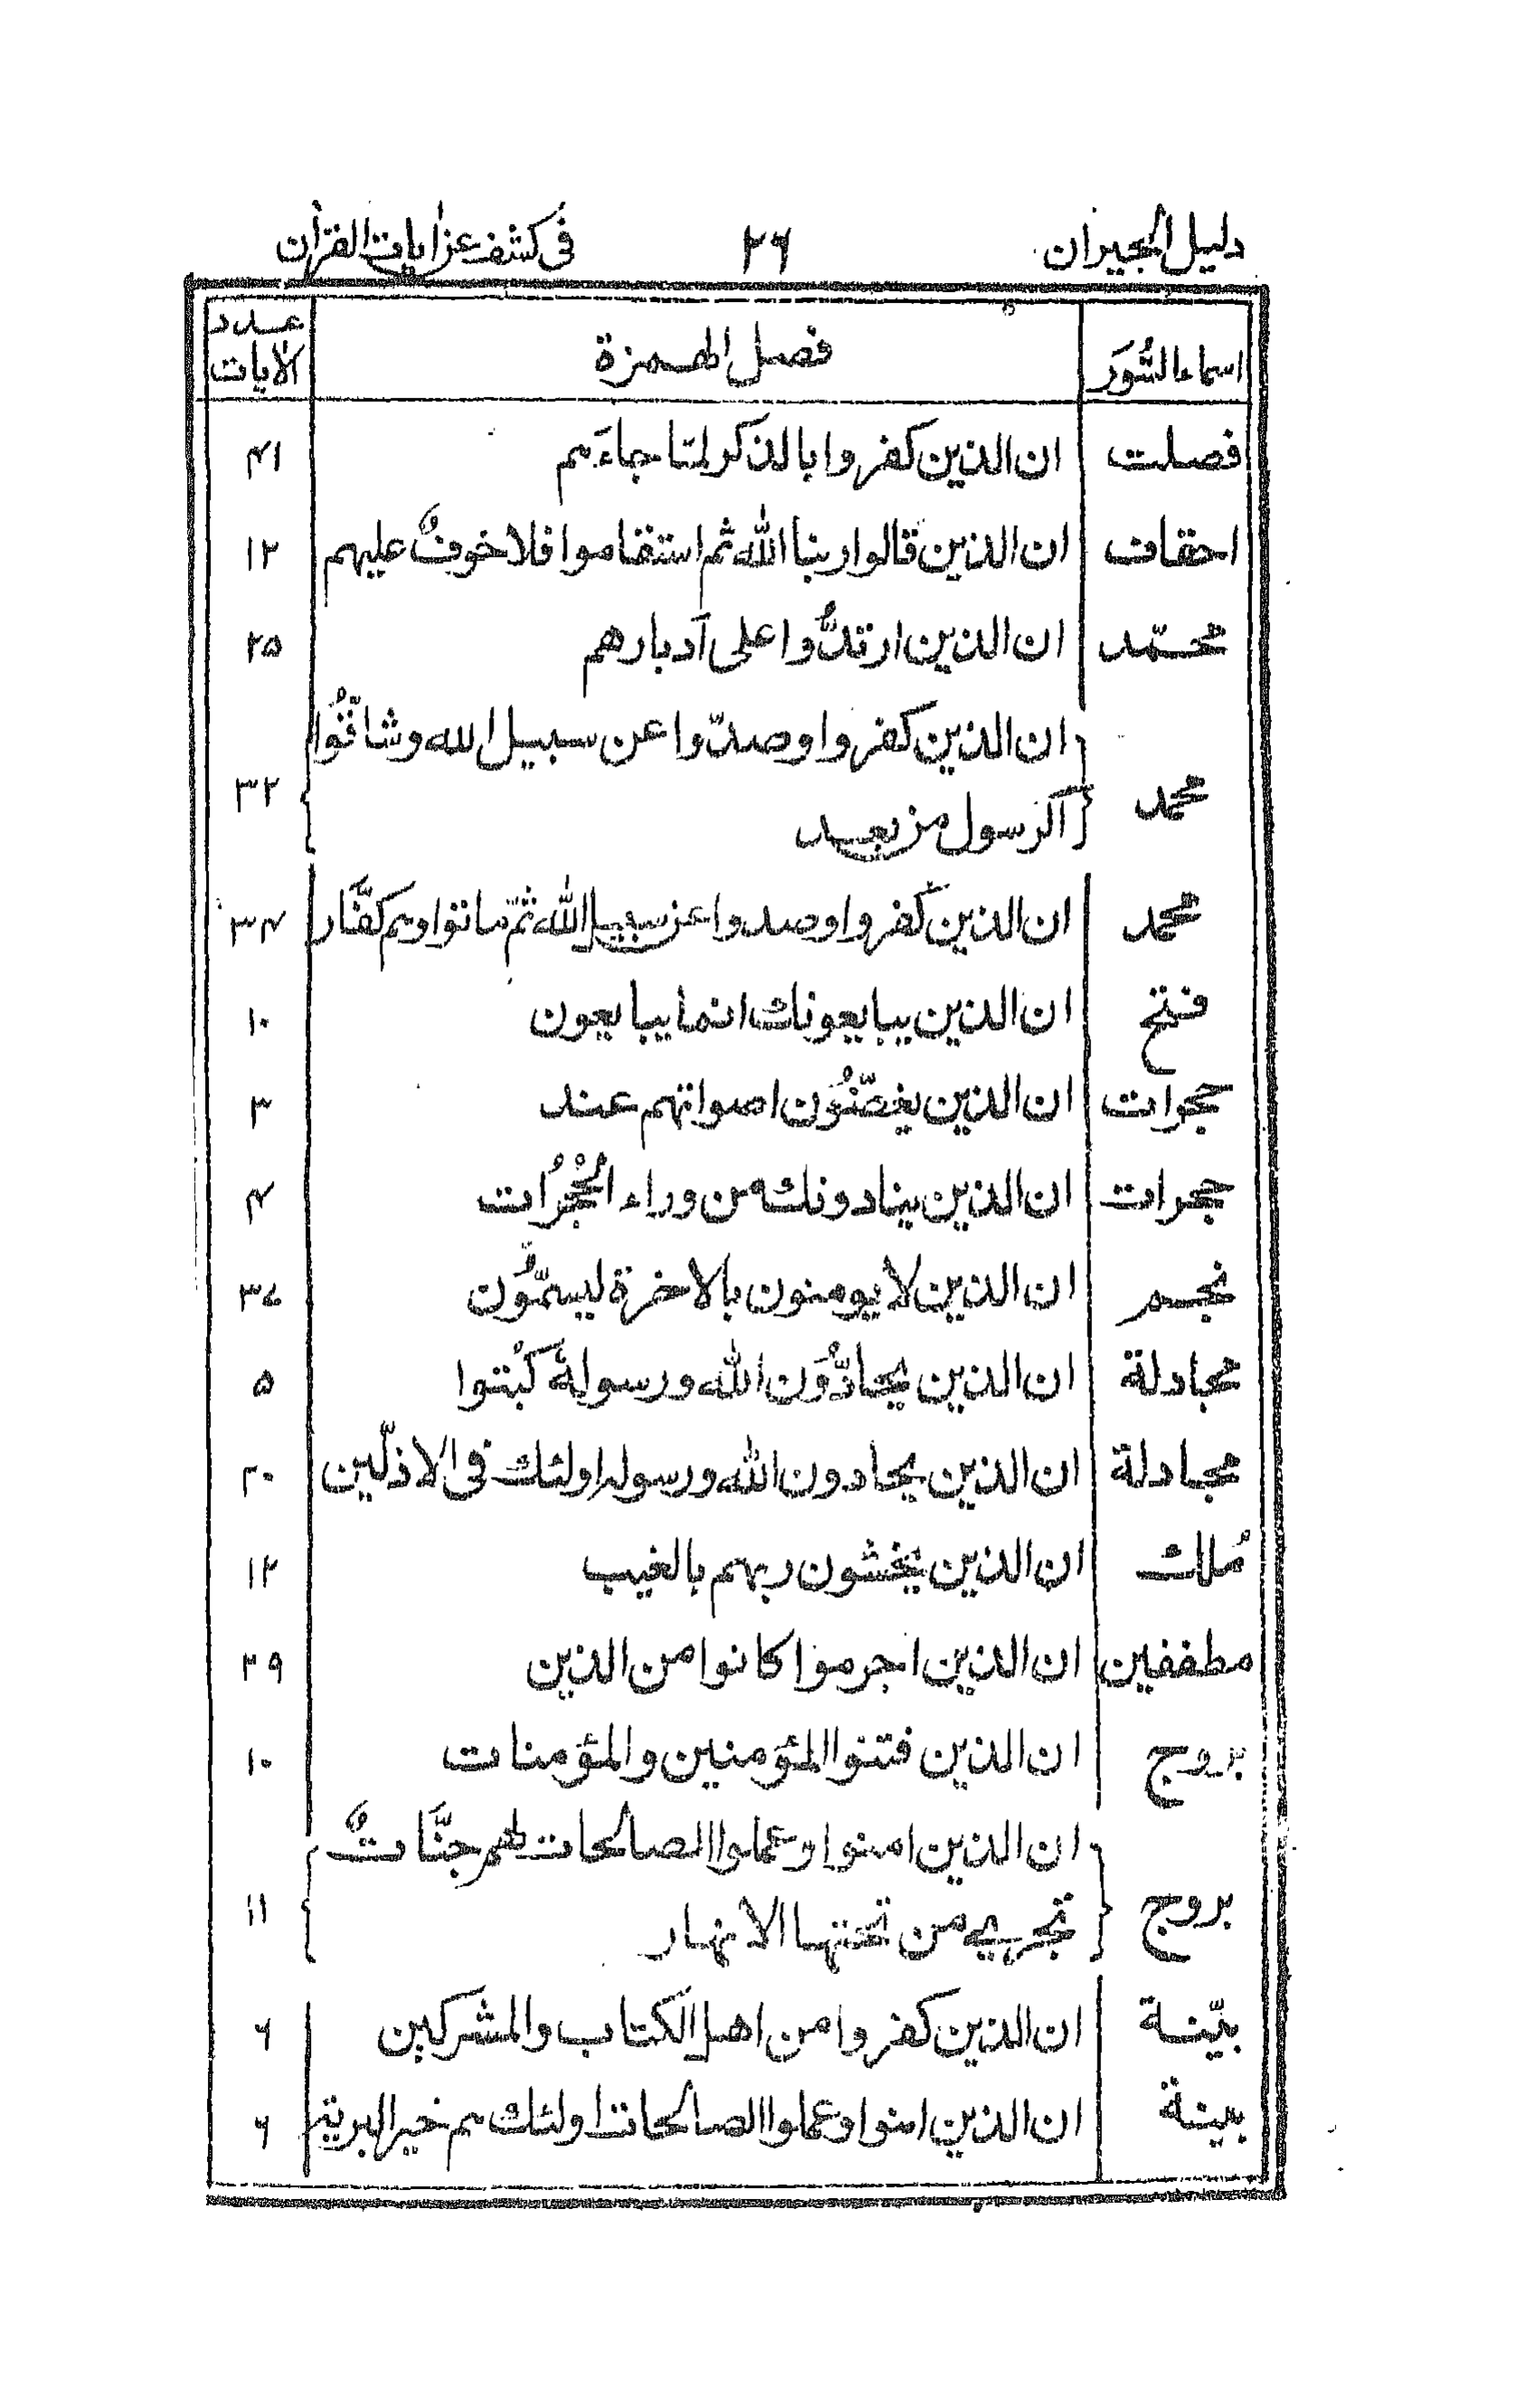 دليل الحيران ٢٦ فى كشف عن اٰيات القراٰن
اسماء السُّوَر فصل الهمزة عدد الاٰيات
فصلت ان الذين كفروا بالذكر لمّا جاءَهم ۴۱
احقاف ان الذين قالوا ربنا اللّٰه ثم استقاموا فلا خوفٌ عليهم ۱۲
محمّد ان الذين ارتدُّوا على اَدبارهم ۲۵
محمد ان الذين كفروا وصدّوا عن سبيل الله وشاقُّوا
الرسول من بعد ۳۲
محمد ان الذين كفروا وصدوا عن سبيل اللّٰه ثمّ ماتوا وهم كفَّار ۳۴
فتح ان الذين يبايعونك انما يبايعون ۱۰
حجرات ان الذين يغضّوُن اصواتهم عند ۳
حجرات ان الذين ينادونك من وراء الحُجْرُات ۴
نجم ان الذين لا يومنون بالاخرة ليسمّوُن ۳۷
مجادلة ان الذين يحادُّوَن اللّٰه ورسولهٗ كُبتوا ۵
مجادلة ان الذين يحادون اللّٰه ورسوله اولئك فى الاذلّين ۲۰
مُلك ان الذين يخشون ربهم بالغيب ۱۲
مطففين ان الذين اجرموا كانوا من الذين ۲۹
بروج ان الذين فتنوا المؤمنين والمؤمنات ۱۰
بروج ان الذين امنوا وعملوا الصالحات لهم جنَّاتٌ
تجرے من تحتها الانهار ۱۱
بيّنة ان الذين كفروا من اهل الكتاب والمشركين ۶
بينة ان الذين امنوا وعملوا الصالحات اولئك هم خير البرية ۶